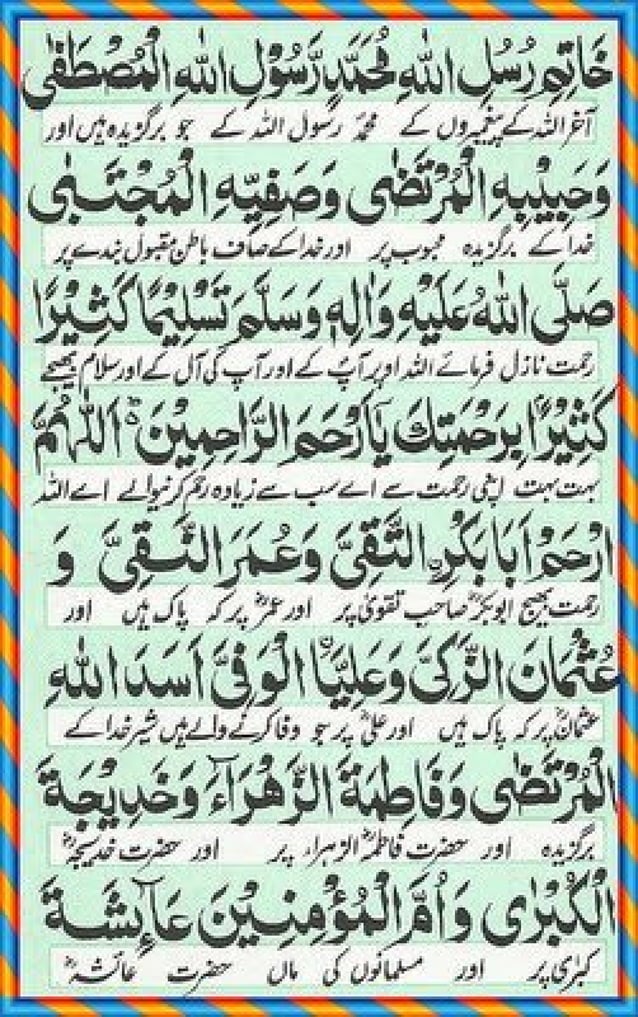 خَاتِمِ رُسُلِ اللّٰهِ مُحَمَّدٍ رَّسُوْلِ اللّٰهِ الْمُصْطَفٰى
آخر اللہ کے پیغمبروں کے محمدؐ رسول اللہ کے جو برگزیدہ ہیں اور
وَحَبِيْبِهِ الْمُرْتَضٰى وَصَفِيِّهِ الْمُجْتَبٰى
خدا کے برگزیدہ محبوب پر اور خدا کے صاف باطن مقبول بندے پر
صَلَّى اللّٰهُ عَلَيْهِ وَاٰلِهٖ وَسَلَّمَ تَسْلِيْمًا كَثِيْرًا
رحمت نازل فرمائے اللہ اوپر آپؐ کے اور آپ کی آل کے اور سلام بھیجے
كَثِيْرًا بِرَحْمَتِكَ يَآ اَرْحَمَ الرَّاحِمِيْنَ ط اَللّٰهُمَّ
بہت بہت اپنی رحمت سے اے سب سے زیادہ رحم کرنیوالے اے اللہ
ارْحَمْ اَبَا بَكْرِ ۨالتَّقِىَّ وَعُمَرَ النَّقِىَّ وَ
رحمت بھیج ابوبکرؓ صاحب تقویٰ پر اور عمرؓ پر کہ پاک ہیں اور
عُثْمَانَ الزَّكِىَّ وَعَلِيَّا ۨالْوَفِىَّ اَسَدَ اللّٰهِ
عثمانؓ پر کہ پاک ہیں اور علیؓ پر جو وفا کرنے والے ہیں شیر خدا کے
الْمُرْتَضٰى وَفَاطِمَةَ الزَّهْرَآءَ وَخَدِيْجَةَ
برگزیدہ اور حضرت فاطمہؓ الزہراء پر اور حضرت خدیجہؓ
الْكُبْرٰى وَاُمَّ الْمُؤْمِنِيْنَ عَآئِشَةَ
کبریٰ پر اور مسلمانوں کی ماں حضرت عائشہؓ